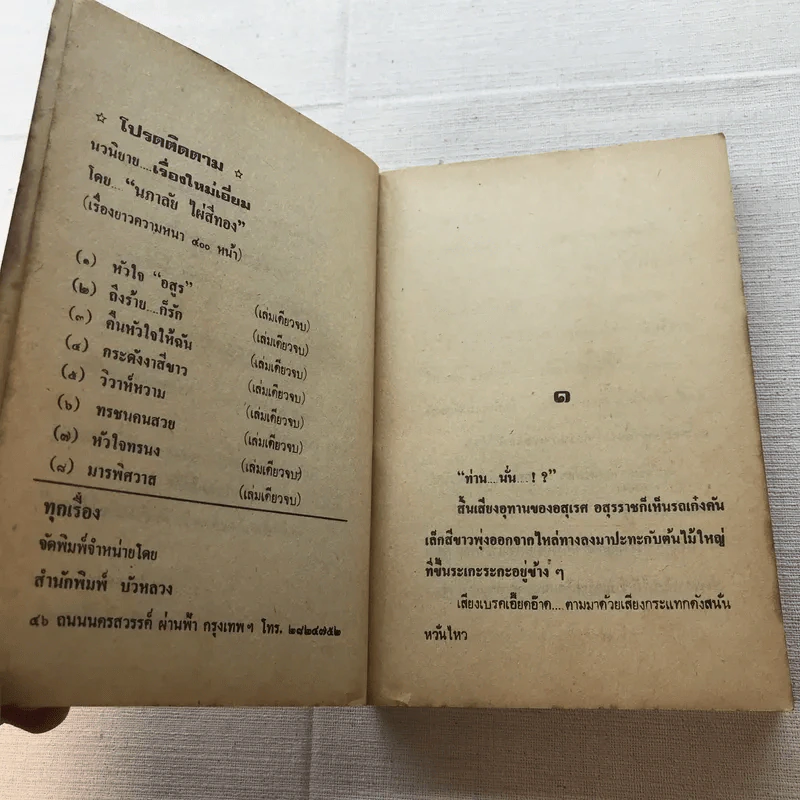 ☆ โปรดติดตาม ☆
นวนิยาย....เรื่องใหม่เอี่ยม
โดย.... “นภาลัย ไผ่สีทอง”
(เรื่องยาวความหนา ๔๐๐ หน้า)
(๑) หัวใจ “อสูร” (เล่มเดียวจบ)
(๒) ถึงร้าย....ก็รัก (เล่มเดียวจบ)
(๓) คืนหัวใจให้ฉัน (เล่มเดียวจบ)
(๔) กระดังงาสีขาว (เล่มเดียวจบ)
(๕) วิวาห์หวาม (เล่มเดียวจบ)
(๖) ทรชนคนสวย (เล่มเดียวจบ)
(๗) หัวใจทรนง (เล่มเดียวจบ)
(๘) มารพิศวาส (เล่มเดียวจบ)
ทุกเรื่อง
จัดพิมพ์จำหน่ายโดย
สำนักพิมพ์ บัวหลวง
๔๖ ถนนนครสวรรค์ ผ่านฟ้า กรุงเทพฯ โทร. ๒๘๒๔๗๕๒
๑
“ท่าน....นั่น....!?”
สิ้นเสียงอุทานของอสุเรศ อสุรราชก็เห็นรถเก๋งคัน
เล็กสีขาวพุ่งออกจากไหล่ทางลงมาปะทะกับต้นไม้ใหญ่
ที่ขึ้นระเกะระกะอยู่ข้าง ๆ
เสียงเบรคเอี๊ยดอ๊าด....ตามมาด้วยเสียงกระแทกดังสนั่น
หวั่นไหว